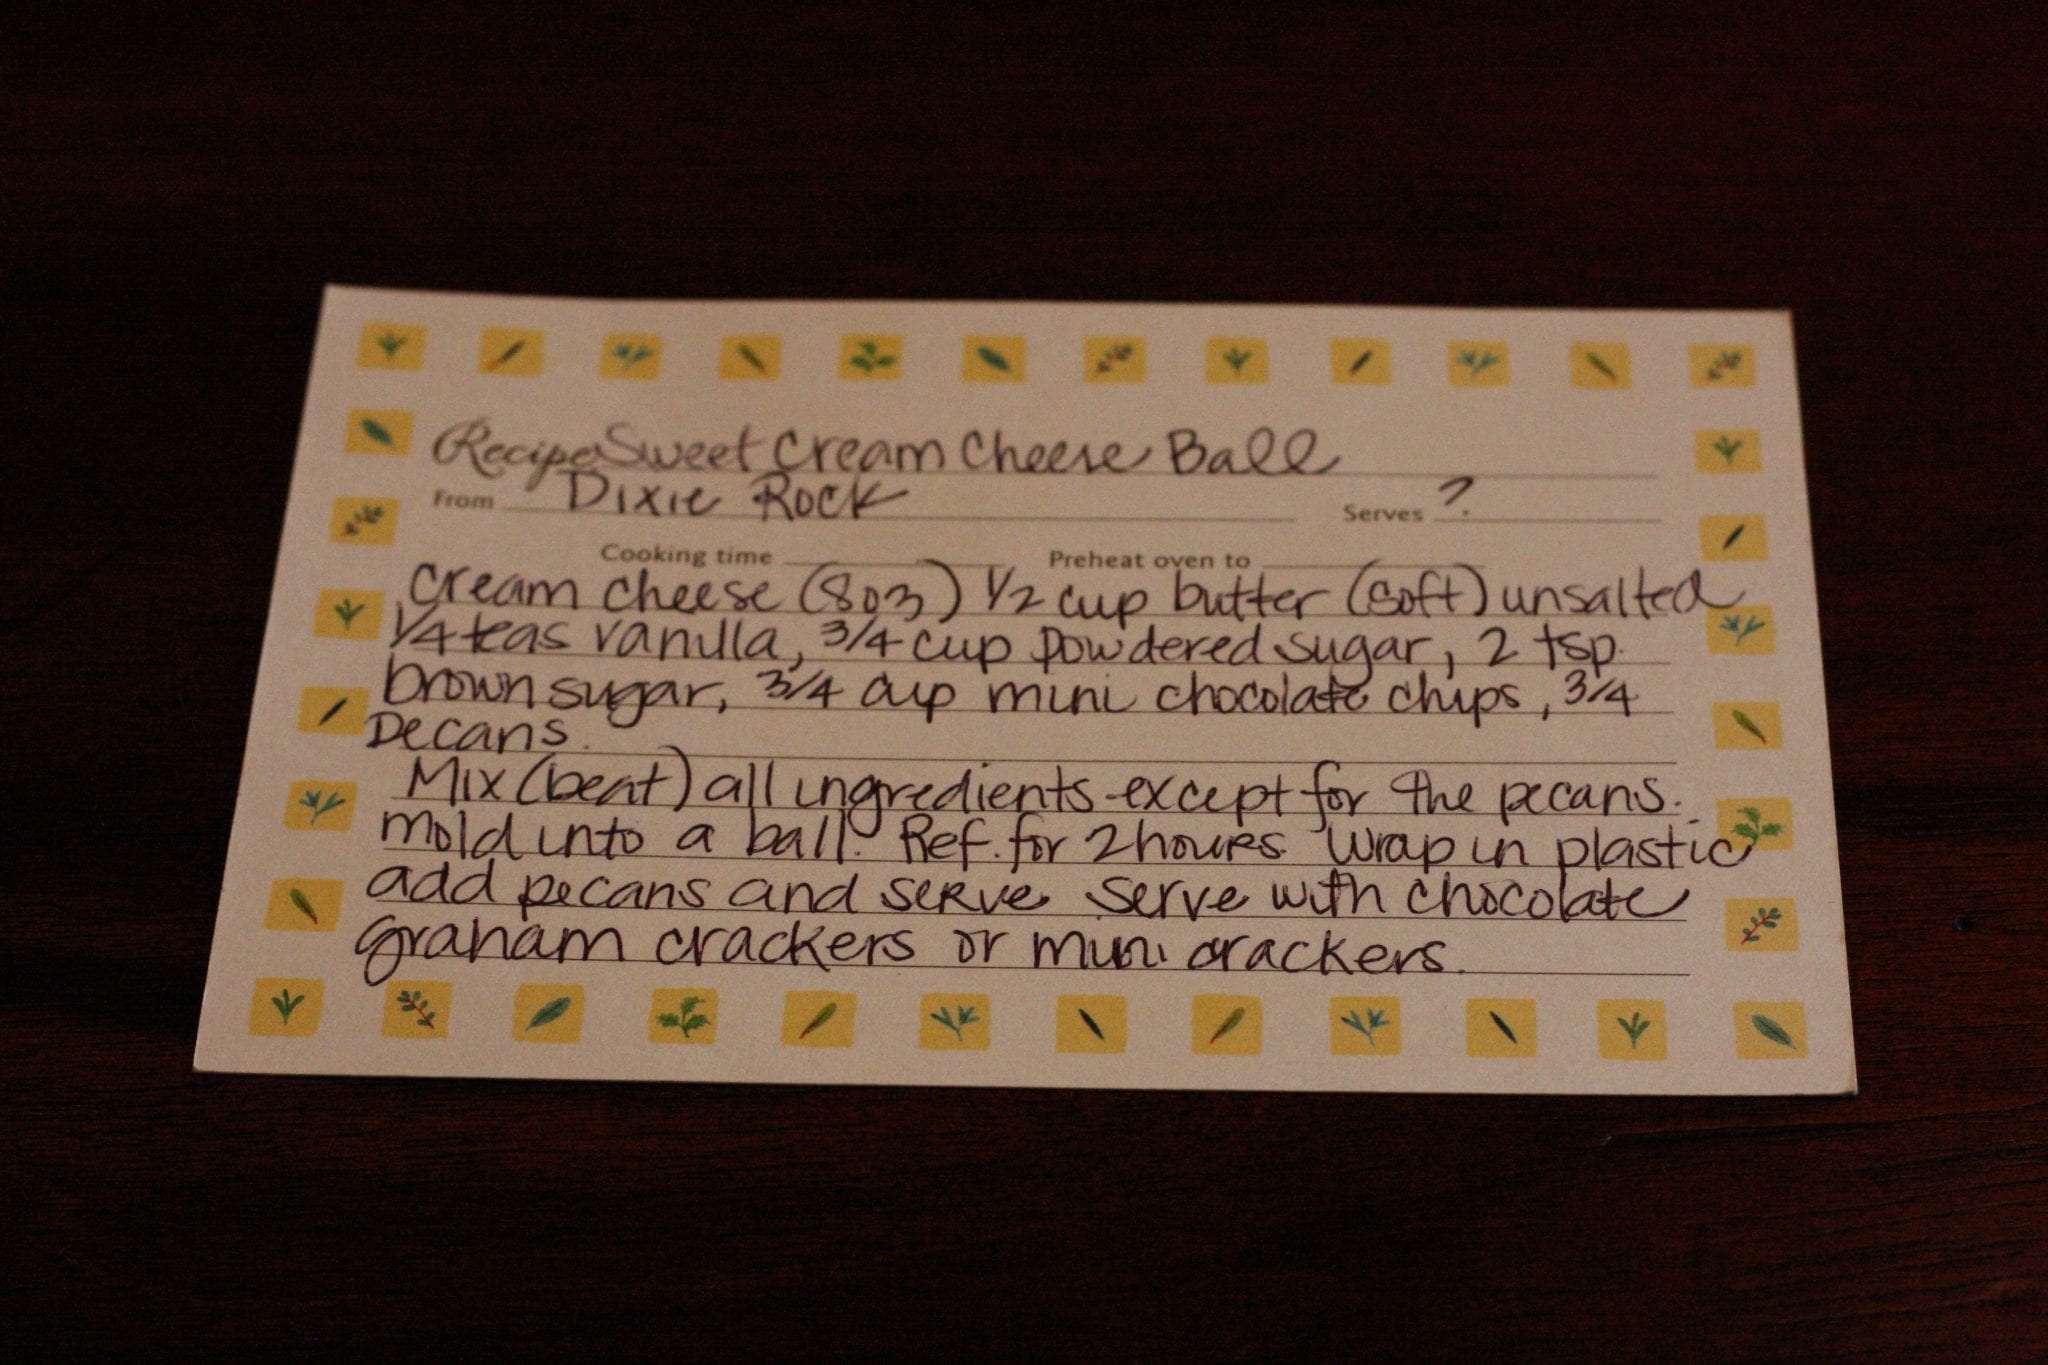 Recipe Sweet Cream Cheese Ball
From Dixie Rock Serves ?
Cooking time Preheat oven to
Cream cheese (8oz) 1/2 cup butter (soft) unsalted
1/4 teas vanilla, 3/4 cup powdered sugar, 2 tsp.
brown sugar, 3/4 cup mini chocolate chips, 3/4
pecans.
Mix (beat) all ingredients except for the pecans.
Mold into a ball. Ref. for 2 hours. Wrap in plastic
add pecans and serve. Serve with chocolate
graham crackers or mini crackers.